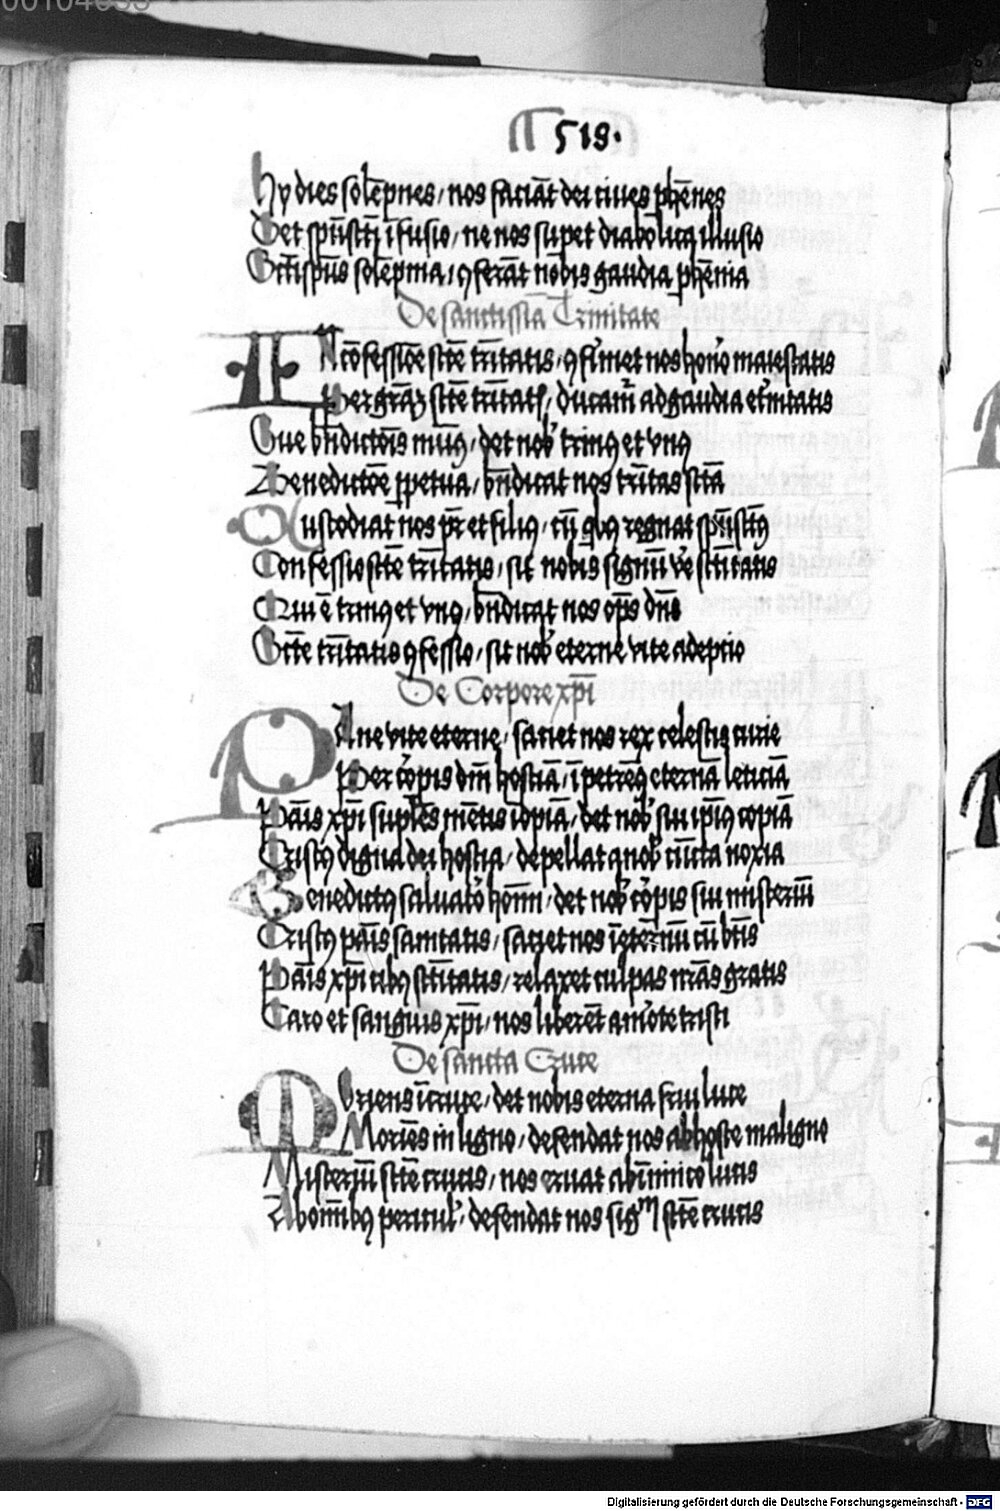 00104633
518.
hy dies solēpnes, nos faciāt dei cives phēnes
Det spūsscti īfusio, ne nos supet diabolica illusio
Sctispūs solēpnia, ꝯferāt nobis gaudia phēnia
De sanctissīa Trinitate
IN cōfessiōe scte trītatis, ꝯfirmet nos honor maiestatis
Per grām scte trītatis, ducam ad gaudia etnitatis
Sue bn̄dictōis mun9, det nob trin9 et vn9
Benedictōe ppetua, bn̄dicat nos trītas sctā
Custodiat nos pr et fili9, cū qb9 regnat spūssct9
Confessio scte trītatis, sit nobis signū
Qui ē trin9 et vn9, bn̄dicat nos ops dn̄s
Scte trītatis ꝯfessio, sit nob eterne vite adeptio
De Corpore xpi
PAne vite eterne, saciet nos rex celestis curie
Per corpis dni hostiā, īpetrem9 eternā leticiā
Panis xpi suples mētis īopiā, det nob sui ipi9 copiā
Crist9 digna dei hostia, depellat a nob cūcta noxia
Benedict9 salvator hoīm, det nob corpis sui misteriū
Crist9 panis sanitatis, saciet nos īeternū cū btis
Panis xpi cib9 sctitatis, relaxet culpas nras gratis
Caro et sanguis xpi, nos liberēt a morte tristi
De sancta Cruce
MOriens ī cruce, det nobis eterna frui luce
Moriēs in ligno, defendat nos ab hoste maligno
Misteriū scte crucis, nos eruat ab inimico lucis
Ab omnib9 pericul, defendat nos sigm scte crucis
Digitalisierung gefördert durch die Deutsche Forschungsgemeinschaft - DFG